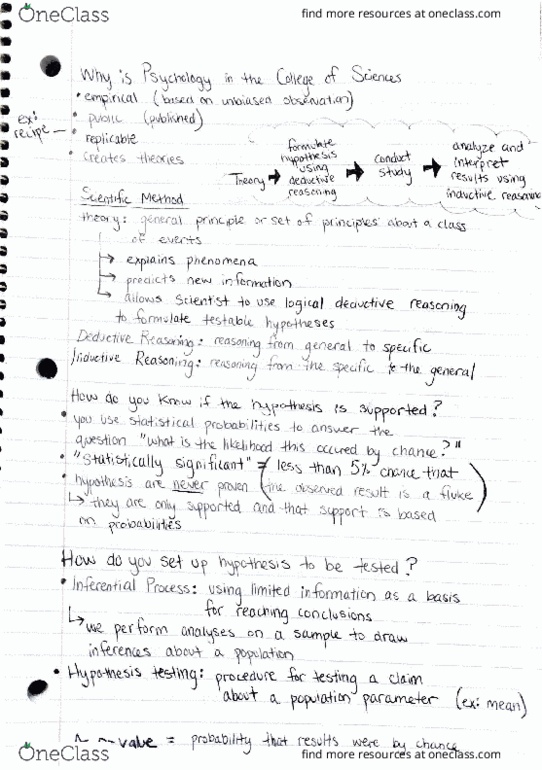 OneClass
find more resources at oneclass.com
Why is Psychology in the College of Sciences
• empirical (based on unbiased observation)
• public (published)
ex: recipe —
• replicable
• creates theories
Theory → formulate hypothesis using deductive reasoning → conduct study → analyze and interpret results using inductive reasoning
Scientific Method
theory: general principle or set of principles about a class
of events
→ explains phenomena
→ predicts new information
→ allows scientist to use logical deductive reasoning
to formulate testable hypotheses
Deductive Reasoning: reasoning from general to specific
Inductive Reasoning: reasoning from the specific to the general
How do you know if the hypothesis is supported?
• you use statistical probabilities to answer the
question "what is the likelihood this occured by chance?"
• "statistically significant" = (less than 5% chance that
the observed result is a fluke)
• hypothesis are never proven
↳ they are only supported and that support is based
on probabilities
How do you set up hypothesis to be tested?
• Inferential Process: using limited information as a basis
for reaching conclusions
↳ we perform analyses on a sample to draw
inferences about a population
• Hypothesis testing: procedure for testing a claim
about a population parameter (ex: mean)
value = probability that results were by chance
OneClass
find more resources at oneclass.com